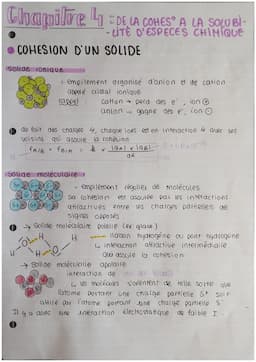 Chapitre 4 : DE LA COHES° A LA SOLUBI-
-LITÉ D'ESPECES CHIMIQUE
COHESION D'UN SOLIDE
Solide ionique
- empilement organisé d'anion et de cation
appelé cristal ionique
rappel cation → perd des e⁻, ion ⊕
anion → gagne des e⁻, ion ⊖
du fait des charges, chaque ions est en interaction avec ses
voisins qui assure la cohésion
Solide moléculaire
- empilement régulier de molécules
Sa cohésion est assurée par les interactions
attractives entre les charges partielles de
signes opposés
→ Solide moléculaire polaire (ex: glace)
H O H
liaison hydrogène ou pont hydrogène
↳ interaction attractive intermédiaire
qui assure la cohésion
→ Solide moléculaire apolaire
interaction de
↳ les molécules s'orientent de telle sorte que
l'atome portant une charge partielle S⁺ soit
attiré par l'atome portant une charge partielle S⁻
Il y a avec une interaction électrostatique de faible I